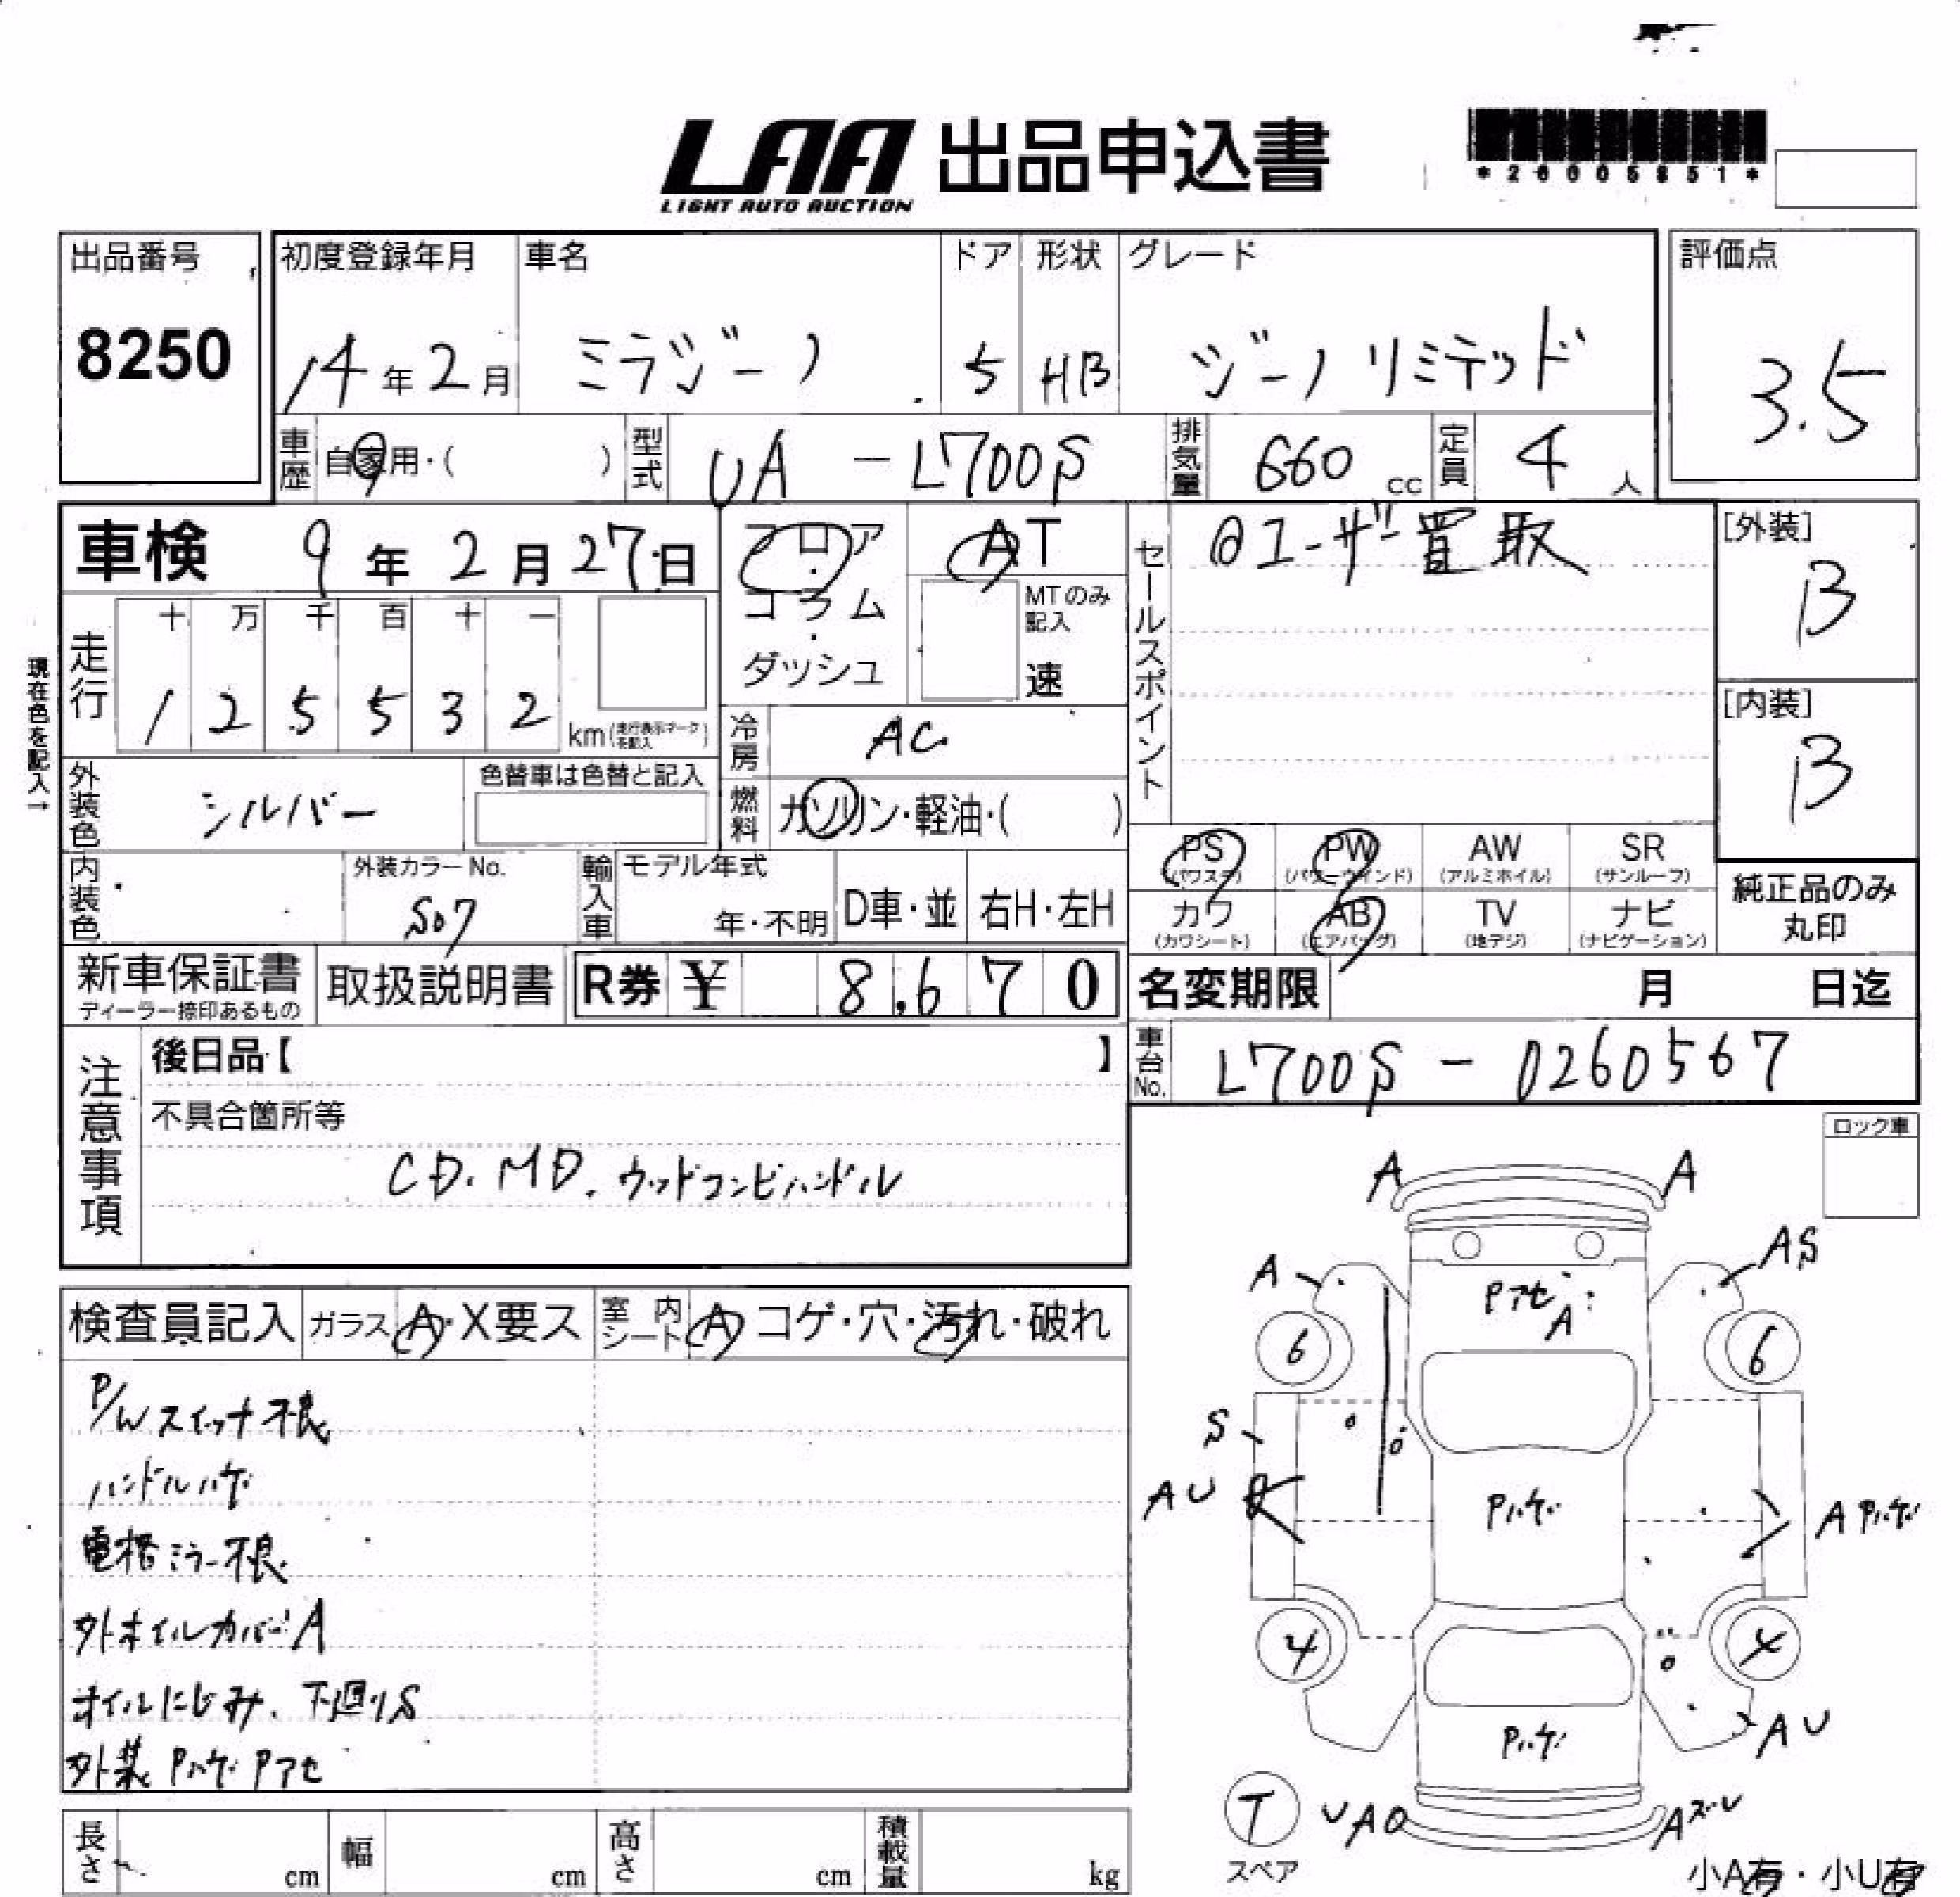 LAA 出品申込書
LIGHT AUTO AUCTION
*26005851*
出品番号
8250
初度登録年月
14年2月
車名
ミラジーノ
ドア
5
形状
HB
グレード
ジーノリミテッド
評価点
3.5
車歴
自家用・( )
型式
UA - L700S
排気量
660 cc
定員
4 人
車検 9年2月27日
フロア・コラム・ダッシュ
AT
MTのみ記入
速
セールスポイント
ユーザー買取
[外装]
B
[内装]
B
現在色を記入→
走行
十 万 千 百 十 一
1 2 5 5 3 2
km(走行表示マークを記入)
冷房
AC
外装色
シルバー
色替車は色替と記入
燃料
ガソリン・軽油・( )
内装色
外装カラーNo.
S07
輸入車
モデル年式
年・不明
D車・並
右H・左H
PS (パワステ)
PW (パワーウインド)
AW (アルミホイル)
SR (サンルーフ)
カワ (カワシート)
AB (エアバッグ)
TV (地デジ)
ナビ (ナビゲーション)
純正品のみ丸印
新車保証書
ディーラー捺印あるもの
取扱説明書
R券 ¥ 8,670
名変期限 月 日迄
車台No.
L700S - 0260567
注意事項
後日品【 】
不具合箇所等
CD. MD. ウッドコンビハンドル
ロック車
検査員記入
ガラス A・X要ス
室内シート A コゲ・穴・汚れ・破れ
P/Wスイッチ不良
ハンドルハゲ
電格ミラー不良
外ホイルカバーA
オイルにじみ、下廻りS
外装 Pハゲ Pアセ
A A
A AS
Pアセ
A
6 6
S
AU
Pハゲ
A Pハゲ
4 4
Pハゲ
AU
T
スペア
UAO
Aズレ
小A有・小U有
長さ cm
幅 cm
高さ cm
積載量 kg